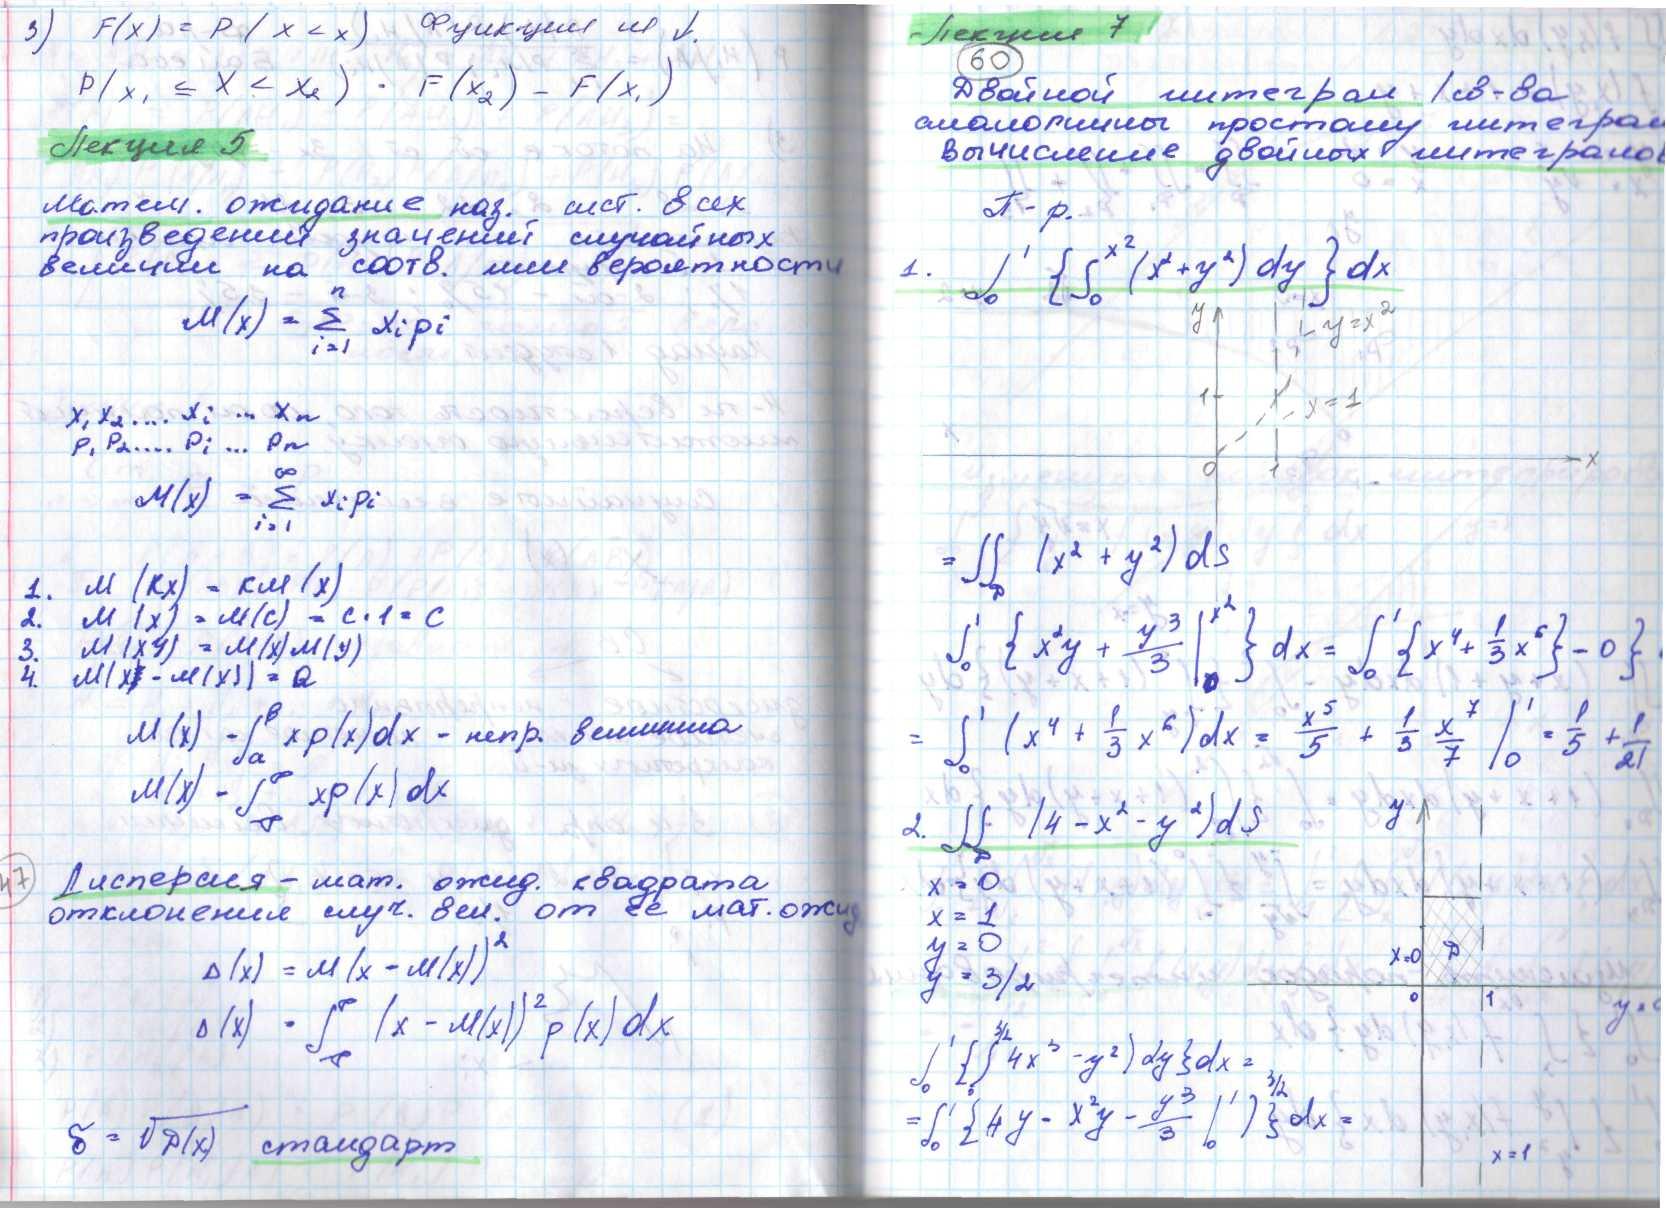 3) F(x) = P(X < x) Функции
P(x₁ ≤ X < x₂) = F(x₂) - F(x₁)
Лекция 5
Матем. ожидание наз. всех
произведений значений случайных
величин на соотв. или вероятности
M(x) = Σ_{i=1}^{n} xᵢpᵢ
x₁ x₂ .... xᵢ ... xₙ
p₁ p₂ .... pᵢ ... pₙ
M(x) = Σ_{i=1}^{∞} xᵢpᵢ
1. M(kx) = kM(x)
2. M(x) = M(c) = c·1 = c
3. M(xy) = M(x)M(y)
4. M(x - M(x)) = 0
M(x) - ∫_a^b xp(x)dx - непр. величина
M(x) - ∫_{-∞}^{∞} xp(x)dx
47
Дисперсия - мат. ожид. квадрата
отклонения случ. вел. от её мат. ожид
D(x) = M(x - M(x))²
D(x) = ∫_{-∞}^{∞} (x - M(x))² p(x)dx
б = √D(x) стандарт
Лекция 7
60
Двойной интеграл /св-ва
аналогичны простому интеграл
Вычисление двойных интегралов
П-р.
1. ∫₀¹ {∫₀^{x²} (x²+y²)dy} dx
y
y=x²
1
x=1
0 1 x
= ∬_D (x² + y²)ds
∫₀¹ {x²y + y³/3 |₀^{x²}} dx = ∫₀¹ {x⁴ + 1/3 x⁶} - 0}
= ∫₀¹ (x⁴ + 1/3 x⁶)dx = x⁵/5 + 1/3 x⁷/7 |₀¹ = 1/5 + 1/21
2. ∬_D (4 - x² - y²)dS
x = 0
x = 1
y = 0
y = 3/2
y
x=0 D
0 1
x=1
∫₀¹ {∫₀^{3/2} 4x³ - y²)dy}dx =
= ∫₀¹ {4y - x²y - y³/3 |₀¹)}^{3/2} dx =